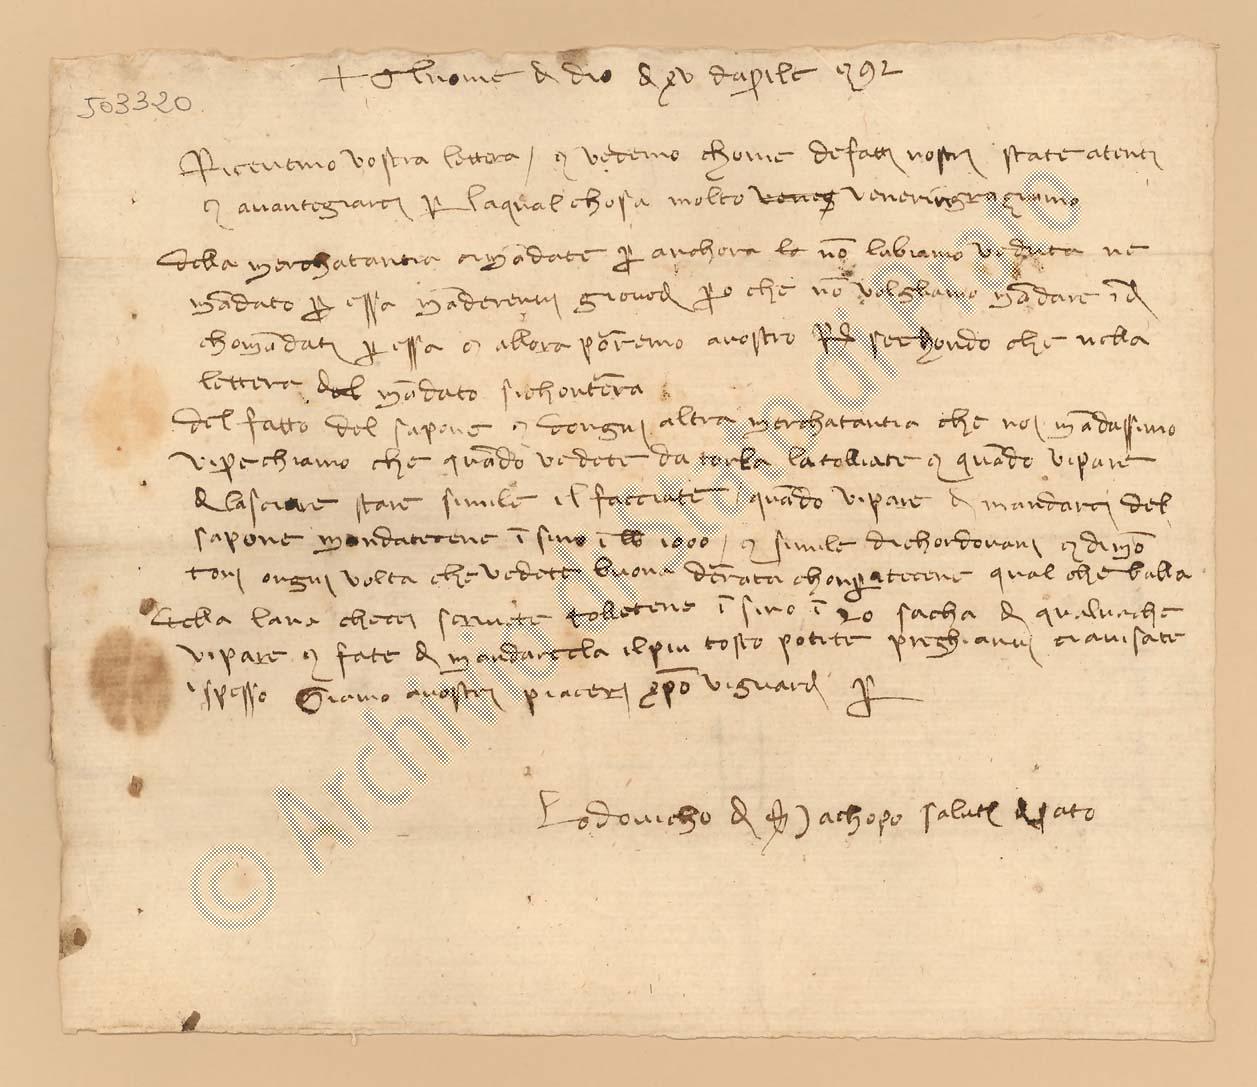 + Al nome di dio di xv daprile 1392
503320
Riceuemo vostra lettera / e vedemo chome de fatti nostri state atenti
e auantegiarci per la qual chosa molto veneg veneringraziamo
della merchatantia cimandate per anchora le non labiamo veduta ne
mandato per essa manderenvi giovedi pero che non volgliamo mandare in di
chomandati per essa e allora porremo a vostro sechondo che nella
lettera del mandato sichonterra
del fatto del sapone e dongni altra merchatantia che voi mandassimo
vi prechiamo che quando vedete da torla la tolliate e quando vi pare
di lasciare stare simile il facciate / quando vi pare di mandarci del
sapone mandatecene in sino in lb 1000 / e simile di chordovani e di mon
toni ongni volta che vedete buona derrata chonpratecene qual che balla
della lana checci scrivete tolletene in sino in 20 sacha di qualunche
vi pare e fate di mandarcela il piu tosto potete preghianvi ci avisate
spesso Siamo a vostri piaceri xpo vi guardi per
Lodovicho di ser Jachopo saluti di prato
© Archivio di Stato di Prato